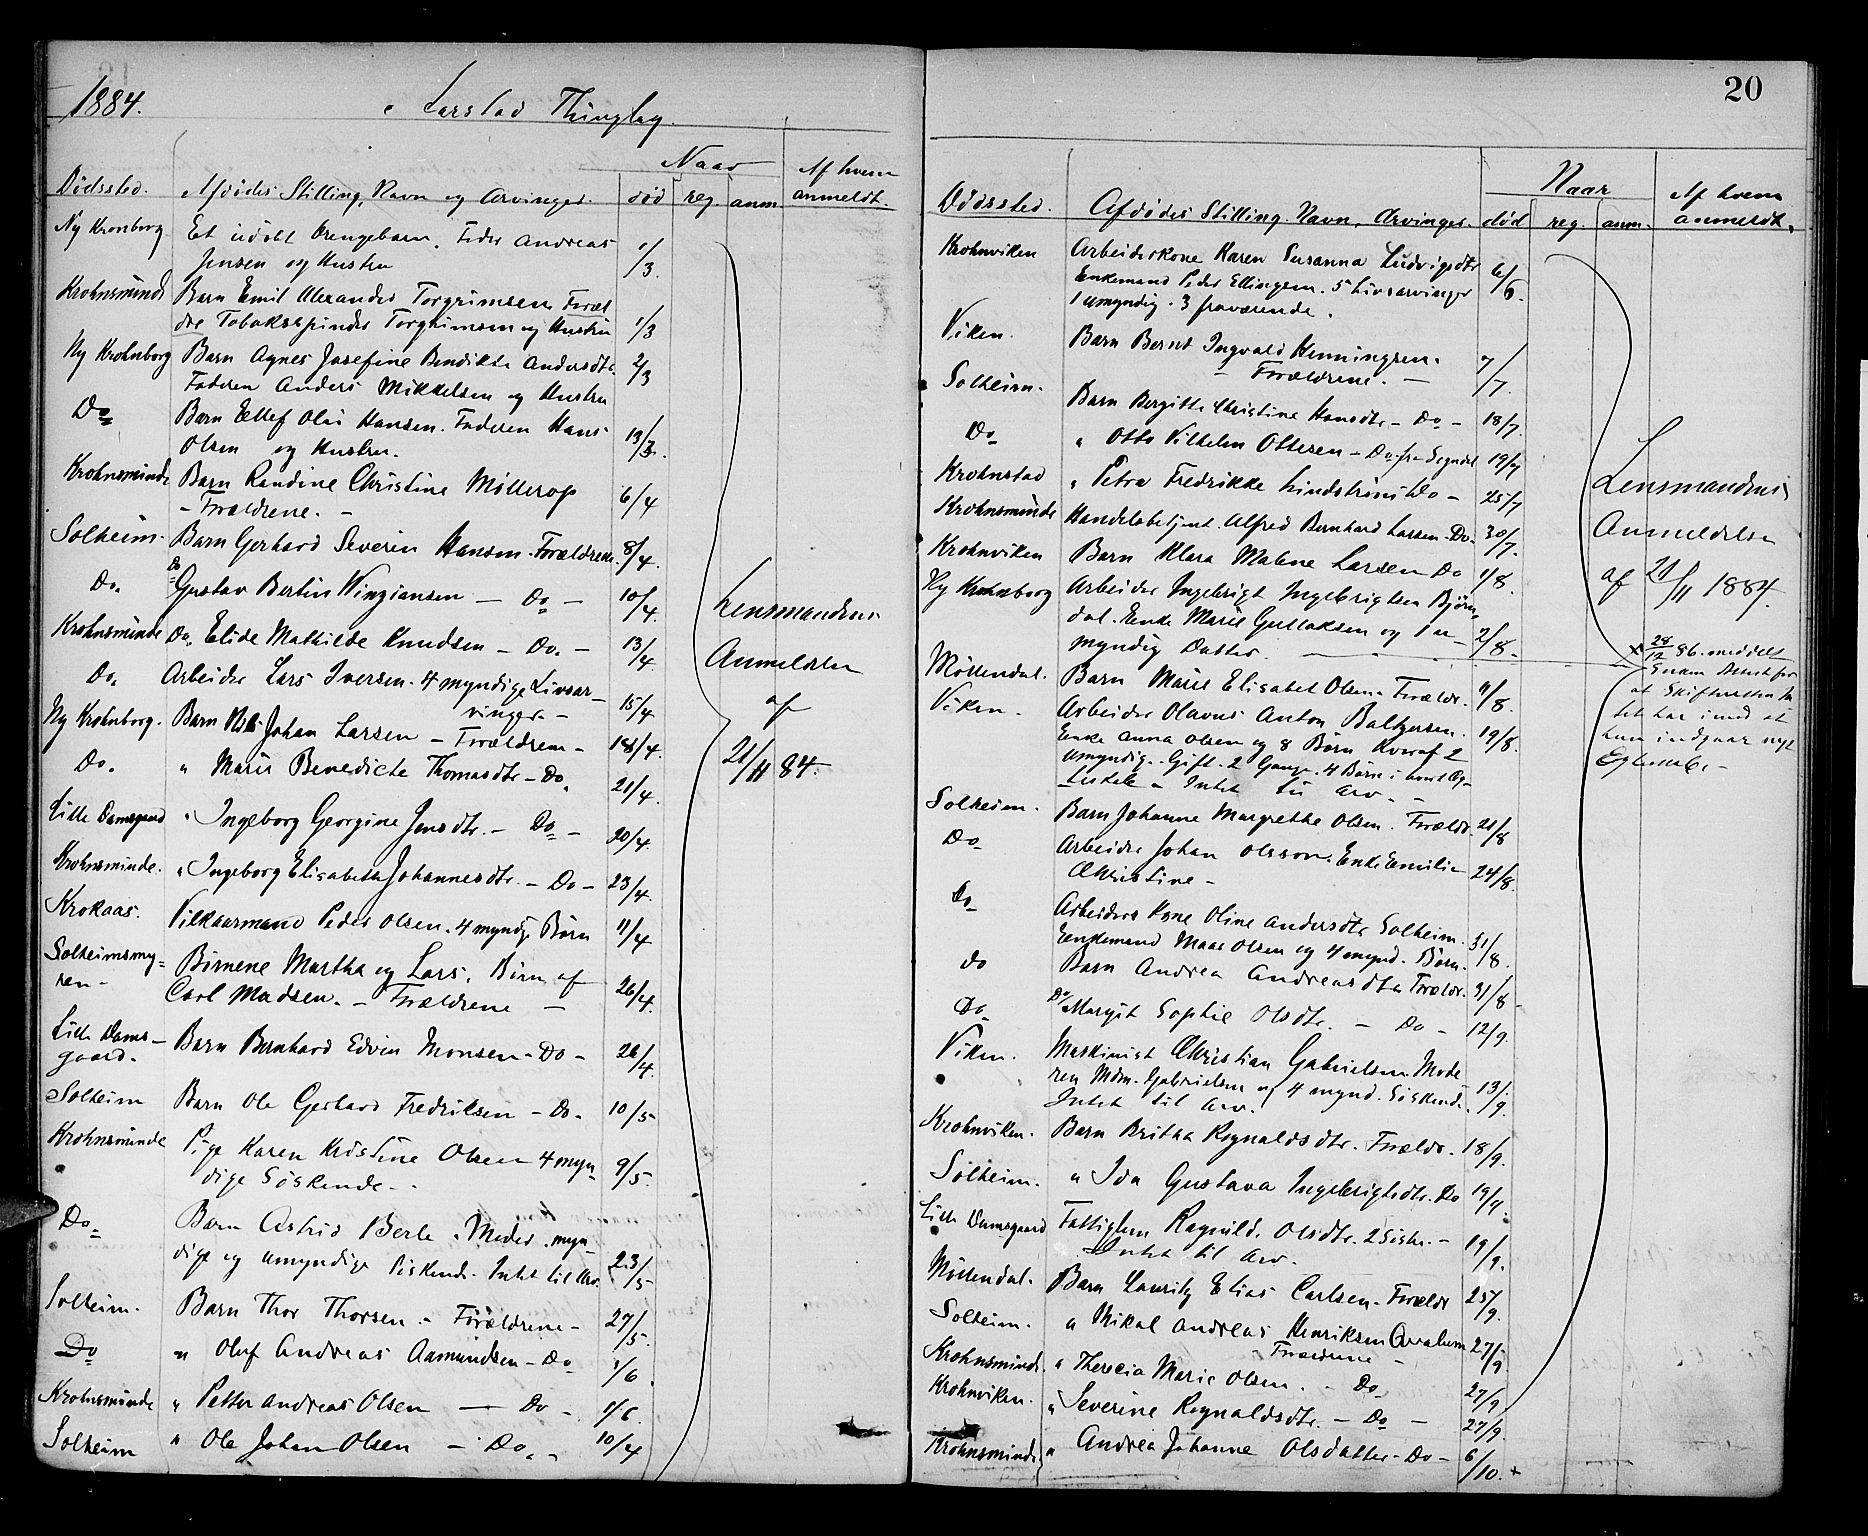 1884.
Thinglag.
Naar
Dødssted.
Afdødes Stilling, Navn og Arvinger.
død
reg.
anm.
Af hvem
anmeldt.
Ny Kronborg
Et udøbt Drengebarn. Fader Andreas
Jensen og Hustru
1/3.
Krohnsminde
Barn Emil Alexander Torgrimsen Foræl
dre Tobakspinder Torgrimsen og Hustru
1/3
Ny Krohnborg
Barn Agnes Josefine Bendikte Andersdtr.
Faderen Anders Mikkelsen og Hustru
2/3
Do
Barn Ellef Olai Hansen. Faderen Hans
Olsen og Hustru.
13/3.
Krohnsminde
Barn Randine Christine Møllerop
- Forældrene. -
6/4
Solheim.
Barn Gerhard Severin Hansen - Forældrene.
8/4.
Do.
Do Gustav Bertin Wingiansen - Do -
10/4.
Krohnsminde
Do. Elide Mathilde Knudsen - Do. -
13/4
Do.
Arbeider Lars Iversen. 4 myndige Livsar-
vinger -
15/4
Ny Krohnborg.
Barn Nils Johan Larsen - Forældrene -
18/4.
Do.
" Marie Benedicte Thomasdtr - Do.
21/4.
Lille Damsgaard
" Ingeborg Georgine Jensdtr. - Do -
20/4.
Krohnsminde.
" Ingeborg Elisabeth Johannesdtr. - Do -
23/4
Krokaas.
Vilkaarmand Peder Olsen. 4 myndige Børn
11/4
Solheimsmy-
ren -
Børnene Martha og Lars, Børn af
Carl Madsen. - Forældrene -
26/4.
Lille Dams-
gaard.
Barn Bernhard Edvin Monsen - Do -
26/4.
Solheim
Barn Ole Gerhard Fredriksen - Do.
10/5
Krohnsminde
Pige Karen Kristine Olsen 4 myn-
dige Søskende. -
9/5.
Do
Barn Astrid Berle. Moder. myn-
dige og umyndige Siskend. Intet til Arv.
23/5
Solheim.
Barn Thor Thorsen. - Forældrene -
27/5.
Do
" Oluf Andreas Aamundsen - Do
1/6.
Krohnsminde
" Petter Andreas Olsen - Do -
1/6.
Solheim
" Ole Johan Olsen - Do. -
10/4
Lensmandens
Anmeldelse
af
21/11 84.
20
Naar
Dødssted.
Afdødes Stilling, Navn, Arvinger.
død
reg.
anm.
Af hvem
anmeldt.
Krohnviken
Arbeiderkone Karen Susanna Ludvigsdtr
Enkemand Peder Ellingsen. 5 Livsarvinger
1 umyndig. 3 fraværende.
6/6.
Viken.
Barn Bernt Ingvald Henningsen.
- Forældrene. -
7/7.
Solheim.
Barn Bergitte Christine Hansdtr - Do -
18/7.
Do
" Otto Vilhelm Ottersen - Do fra Sogndal
19/7
Krohnstad
" Petra Fredrikke Lindstrøm Do -
25/7
Krohnsminde
Handelsbetjent. Alfred Bernhard Larsen - Do.
30/7.
Krohnviken
Barn Klara Malene Larsen Do
1/8.
Ny Krohnborg
Arbeider Ingebrigt Ingebrigtsen Bjørn-
dal. Enke Marie Gutlaksen og 1 u-
myndig Datter.
2/8.
Möllendal.
Barn Marie Elisabet Olsen Forældr.
11/8.
Viken.
Arbeider Olavus Anton Baltzersen.
Enke Anna Olsen og 8 Børn hvoraf 2
umyndig. Gift. 2 Gange. 4 Børn i hvert Æg-
teskab - Intet til Arv. -
19/8.
Solheim.
Barn Johanne Margrethe Olsen. Forældr.
21/8
Do
Arbeider Johan Olsson. Enke Emilie
Christine -
24/8.
Do
Arbeiders Kone Oline Andersdtr Solheim.
Enkemand Maas Olsen og 4 mynd. Børn.
31/8.
Do
Barn Andrea Andreasdtr Forældr.
31/8 -
Do
Do Margit Sophie Olsdtr. - Do -
12/9.
Viken.
Maskinist Christian Gabrielsen Mode
ren Mdm. Gabrielsen og 4 mynd. Søskende.
Intet til Arv.
13/9.
Krohnviken.
Barn Britha Rognaldsdtr. Forældr.
18/9.
Solheim.
" Ida Gustava Ingebrigtsdtr. Do
19/9.
Lille Damsgaard
Fattiglem Ragnild. Olsdtr. 2 Sistre. -
Intet til Arv.
19/9.
Möllendal.
Barn Lauritz Elias Carlsen - Forældr
25/9.
Solheim.
" Mikal Andreas Henriksen
- Forældrene -
27/9.
Krohnsminde.
" Therecia Marie Olsen. - Do
27/9
Krohnviken.
" Severine Rognaldsdtr. - Do -
27/9.
Krohnsminde
" Andrea Johanne Olsdatter - Do -
6/10. +
Lensmandens
Anmeldelse
af 21/11 1884.
+ 28/12 86. meddelt
Enken Attest for
at Skifteretten In
tet har imod at
hun indgaar nyt
Egteskab. -